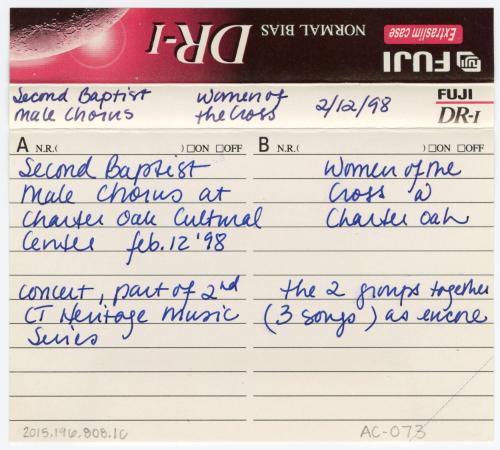 FUJI
Extraslim case
NORMAL BIAS
DR-I
Second Baptist Women of 2/12/98 FUJI
Male Chorus the Cross DR-I
A N.R.( ) □ON □OFF B N.R.( ) □ON □OFF
Second Baptist
Male Chorus at
Charter Oak Cultural
Center feb. 12 '98
concert, part of 2nd
CT Heritage Music
Series
Women of the
Cross @
Charter Oak
the 2 groups together
(3 songs) as encore
2015.196.808.1c
AC-073